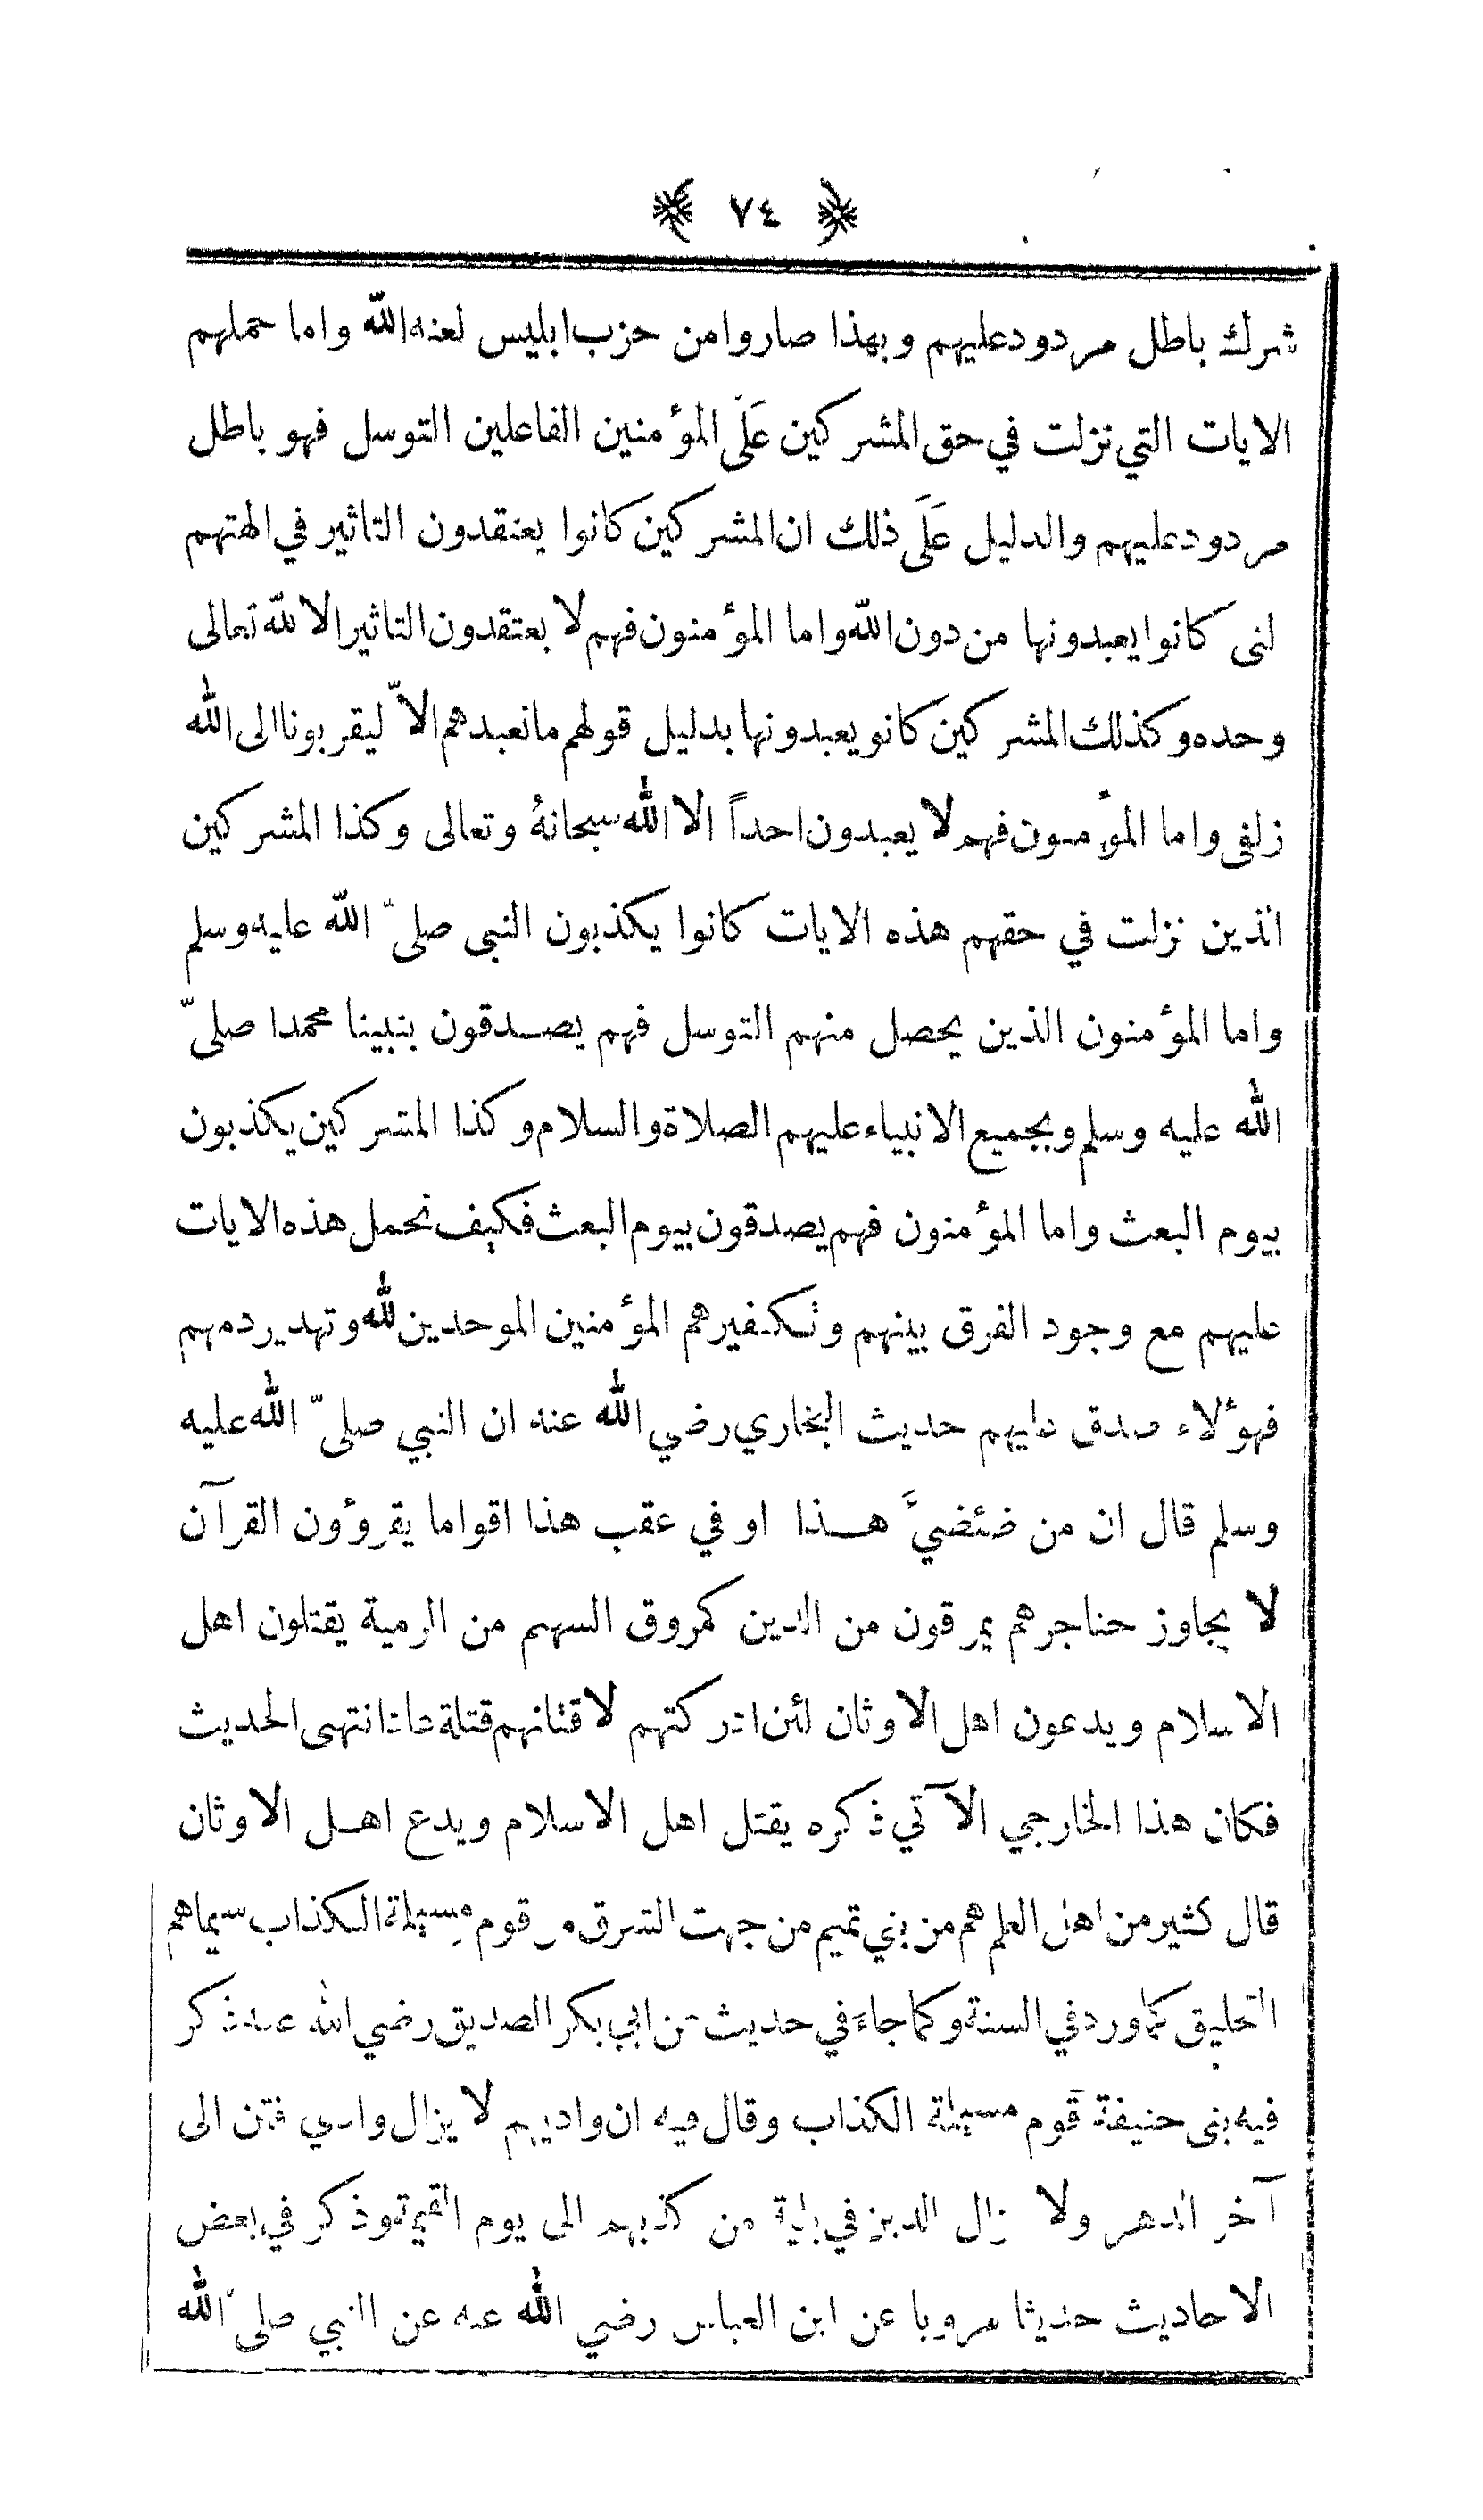 ٧٤
شرك باطل مردود عليهم وبهذا صاروا من حزب ابليس لعنه الله واما حملهم
الايات التي نزلت في حق المشركين عَلَى المؤمنين الفاعلين التوسل فهو باطل
مردود عليهم والدليل عَلَى ذلك ان المشركين كانوا يعتقدون التاثير في الهتهم
لتى كانوا يعبدونها من دون الله واما المؤمنون فهم لا يعتقدون التاثير الا لله تعالى
وحده وكذلك المشركين كانو يعبدونها بدليل قولهم ما نعبدهم الاّ ليقربونا الى الله
زلفى واما المؤمنون فهم لا يعبدون احداً الا الله سبحانهُ وتعالى وكذا المشركين
الذين نزلت في حقهم هذه الايات كانوا يكذبون النبى صلىّ الله عليه وسلم
واما المؤمنون الذين يحصل منهم التوسل فهم يصدقون بنبينا محمدا صلىّ
الله عليه وسلم وبجميع الانبياء عليهم الصلاة والسلام وكذا المشركين يكذبون
بيوم البعث واما المؤمنون فهم يصدقون بيوم البعث فكيف نحمل هذه الايات
عليهم مع وجود الفرق بينهم وتكفيرهم المؤمنين الموحدين لله وتهدير دمهم
فهؤلاء صدق عليهم حديث البخاري رضي الله عنه ان النبي صلىّ الله عليه
وسلم قال ان من ضئضيَّ هذا او في عقب هذا اقواما يقرؤون القرآن
لا يجاوز حناجرهم يمرقون من الدين كمروق السهم من الرمية يقتلون اهل
الاسلام ويدعون اهل الاوثان لئن ادركتهم لاقتلنهم قتلة عاد انتهى الحديث
فكان هذا الخارجي الآتي ذكره يقتل اهل الاسلام ويدع اهل الاوثان
قال كثير من اهل العلم هم من بني تميم من جهت الشرق من قوم مسيلمة الكذاب سيماهم
التحليق كما ورد في السنة وكما جاءَ في حديث عن ابي بكر الصديق رضي الله عنه ذكر
فيه بنى حنيفة قوم مسيلمة الكذاب وقال فيه ان واديهم لا يزال وادي فتن الى
آخر الدهر ولا يزال الدين في بلية من كذبهم الى يوم القيمة وذكر في بعض
الاحاديث حديثا مرويا عن ابن العباس رضي الله عنه عن النبي صلىّ الله